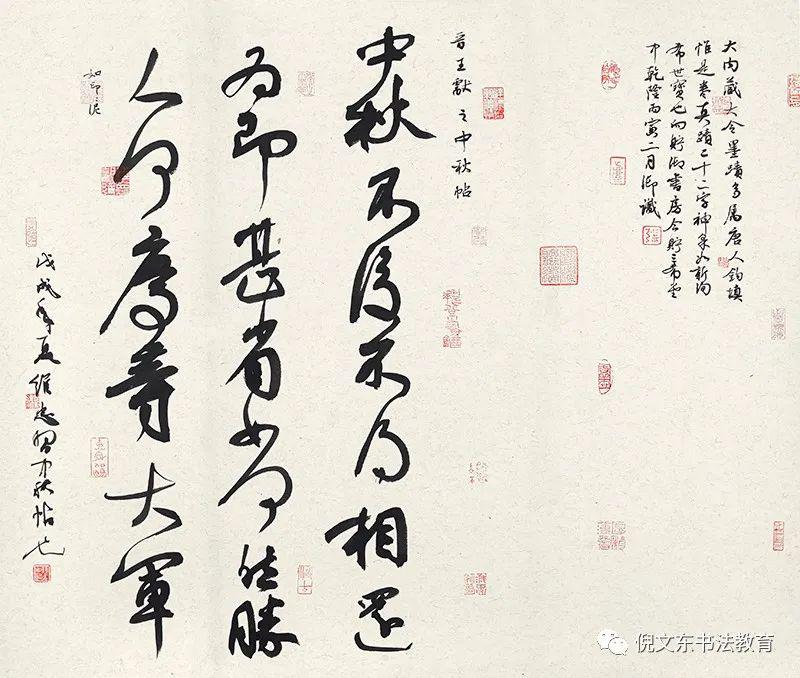 大内藏大令墨蹟多屬唐人鉤填
惟是卷真蹟二十二字神采如新洵
希世寶也向貯御書房今貯三希堂
中乾隆丙寅二月御識
晉王獻之中秋帖
中秋不復不得相還
为即甚省如何然勝
人何慶等大軍
如印泥
戊戌年夏维忠習中秋帖也
倪文东书法教育